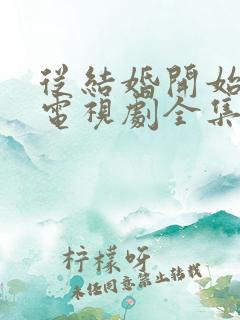 從結婚開始
電視劇全集
柠檬呀
未经同意禁止转载